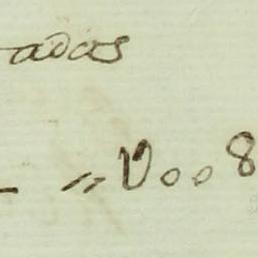 adas
- " V008